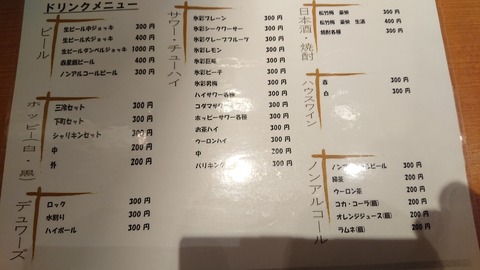 ドリンクメニュー
ビール
生ビール中ジョッキ 300円
生ビール大ジョッキ 400円
生ビールダンベルジョッキ 1000円
赤星瓶ビール 400円
ノンアルコールビール 300円
ホッピー(白 黒)
三冷セット 300円
下町セット 300円
シャリキンセット 300円
中 200円
外 200円
デュワーズ
ロック 300円
水割り 300円
ハイボール 300円
サワー・チューハイ
氷彩プレーン 300円
氷彩シークワーサー 300円
氷彩グレープフルーツ 300円
氷彩レモン 300円
氷彩巨峰 300円
氷彩ピーチ 300円
氷彩男梅 300円
ハイサワー各種 300円
コダマサワー 300円
ホッピーサワー各種 300円
お茶ハイ 300円
ウーロンハイ 300円
中 200円
バリキング 300円
日本酒・焼酎
松竹梅 豪快 300円
松竹梅 豪快 生酒 400円
焼酎各種 300円
ハウスワイン
赤 300円
白 300円
ノンアルコール
ノンアルコールビール 300円
緑茶 200円
ウーロン茶 200円
コカ・コーラ(缶) 200円
オレンジジュース(缶) 200円
ラムネ(缶) 200円